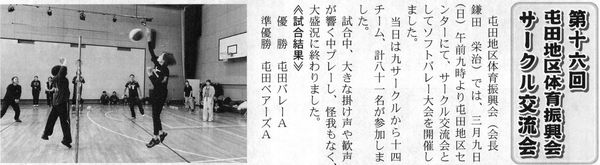 第十六回
屯田地区体育振興会
サークル交流会
屯田地区体育振興会（会長
鎌田　栄治）では、三月九日
（日）午前九時より屯田地区セ
ンターにて、サークル交流会と
してソフトバレー大会を開催し
ました。
当日は九サークルから十四
チーム、計八十一名が参加しま
した。
試合中、大きな掛け声や歓声
が響く中プレーし、怪我もなく、
大盛況に終わりました。
≪試合結果≫
優　勝　屯田バレーA
準優勝　屯田ベアーズA